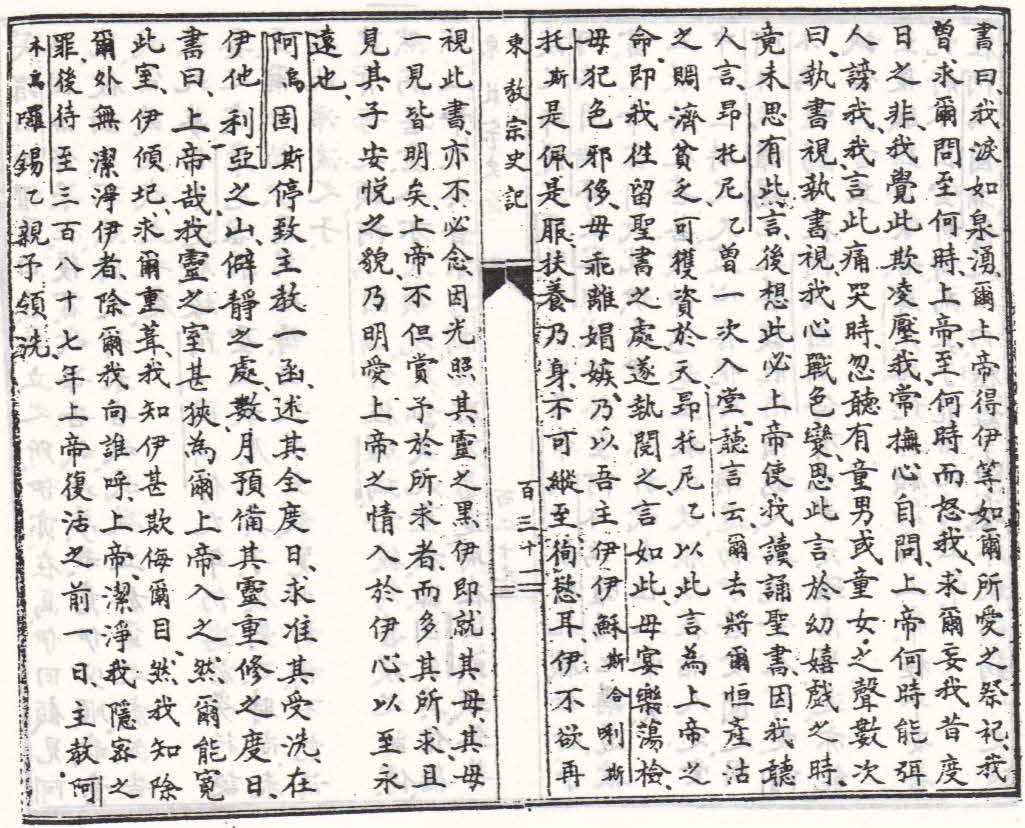 書曰、我淚如泉湧、爾上帝得伊等、如爾所愛之祭祀、我
曾求爾、問至何時、上帝、至何時而怒我、求爾妄我昔度
日之非、我覺此欺凌壓我、常撫心自問、上帝何時能弭
人謗我、我言此痛哭時、忽聽有童男或童女之聲、數次
曰、執書視、執書視、我心戰色變、思此言於幼嬉戲之時、
竟未思有此言、後想此必上帝使我讀誦聖書、因我聽
人言、昂托尼乙曾一次入堂、聽言云、爾去將爾恒產沽
之、賙濟貧乏、可獲資於天、昂托尼乙以此言為上帝之
命、即我徃留聖書之處、遂執閱之、言如此、毋宴樂蕩檢、
毋犯色邪侈、毋乖離媢嫉、乃以吾主伊伊穌斯合唎斯
托斯是佩是服、扶養乃身、不可縱至徇慾耳、伊不欲再
東教宗史記
百三十二
視此書、亦不必念、因光照其靈之黑、伊即就其母、其母
一見皆明矣、上帝、不但賞予於所求者、而多其所求、且
見其子安悅之貌、乃明愛上帝之情入於伊心、以至永
遠也、
阿烏固斯停致主教一函、述其全度日、求准其受洗、在
伊他利亞之山、僻靜之處、數月預備其靈重修之度日、
書曰、上帝哉、我靈之室甚狹、為爾上帝入之、然爾能寬
此室、伊傾圮、求爾重葺、我知伊甚欺侮爾目、然我知除
爾外無潔淨伊者、除爾我向誰呼、上帝、潔淨我隱宻之
罪、後待至三百八十七年上帝復活之前一日、主教阿
木烏囉錫乙親子領洗、